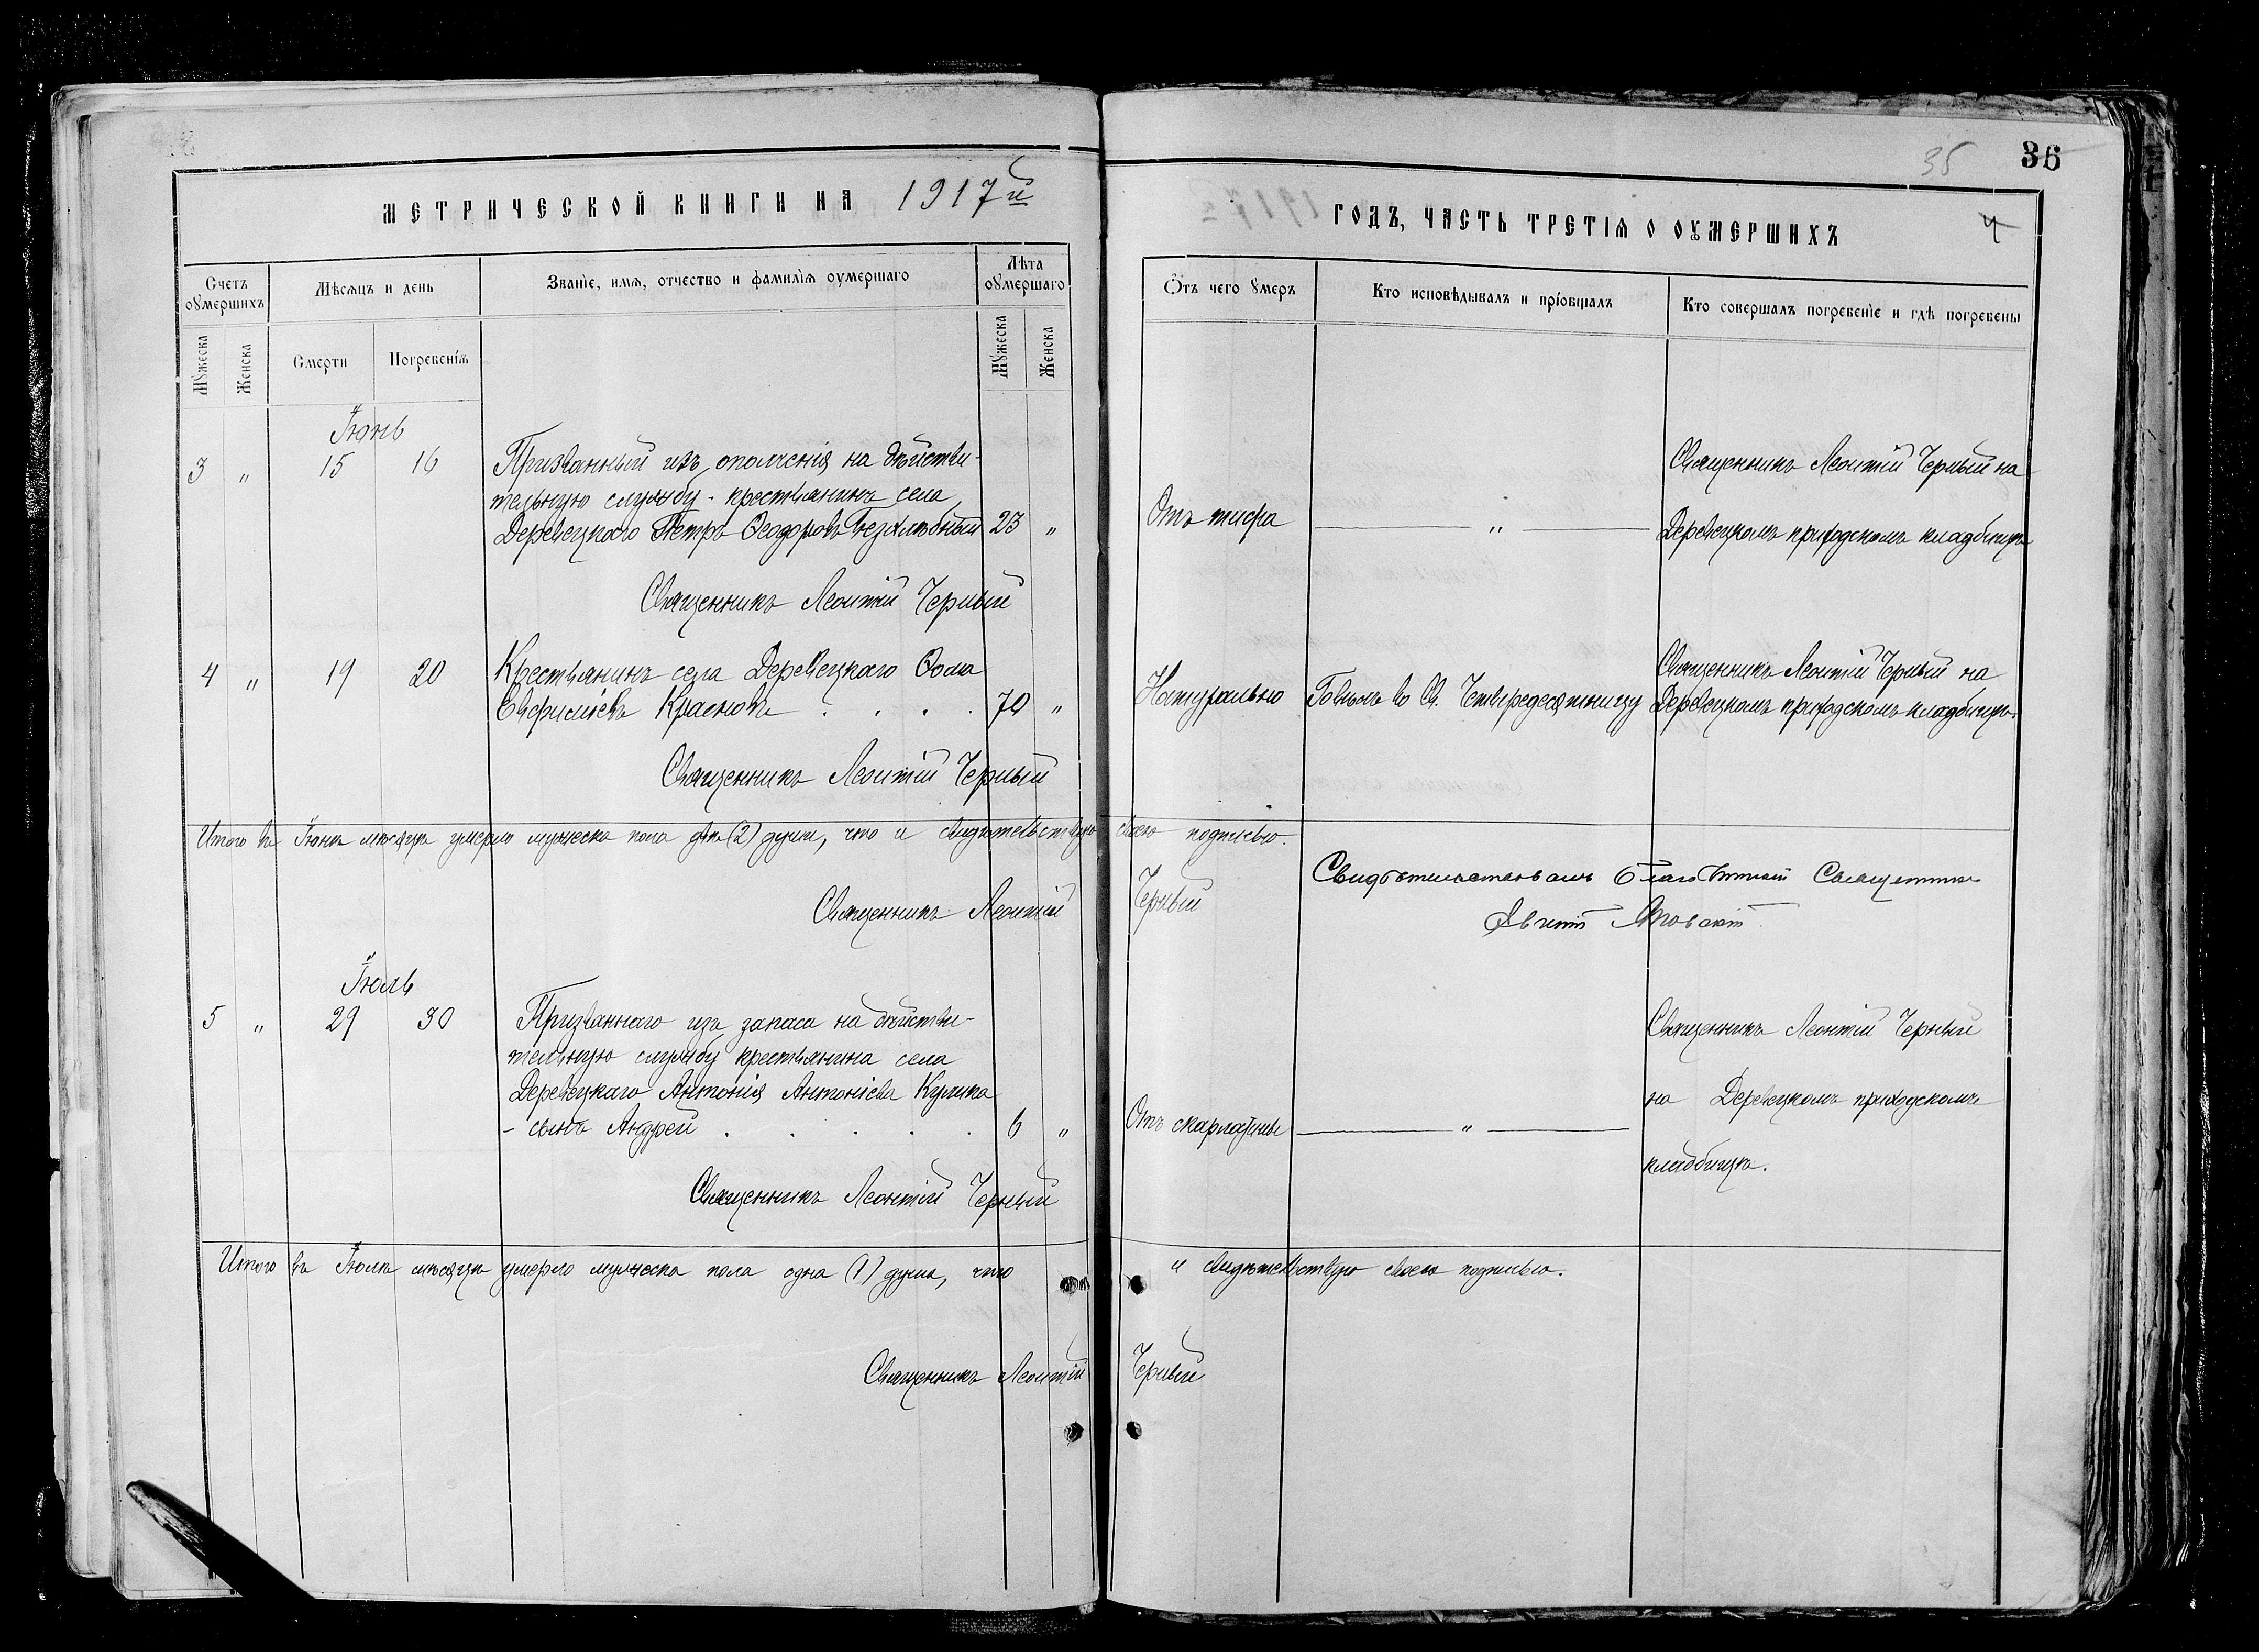 МЕТРИЧЕСКОЙ КНИГИ НА 1917й
Счетъ оумершихъ
Мѣсяцъ и день
Званіе, имя, отчество и фамилія оумершаго
Лѣта оумершаго
Мужеска
Женска
Смерти
Погребенія
Мужеска
Женска
Іюнь
3 " 15 16 Призванный изъ ополченія на дѣйстви-
тельную службу - крестьянинъ села
Деревецкого Петръ Ѳеодоровъ Безхлѣбный 23 "
Священникъ Леонтій Черный
4 " 19 20 Крестьянинъ села Деревецкаго Ѳома
Евфиміевъ Красновъ . . . . 70 "
Священникъ Леонтій Черный
Итого въ Іюнѣ мѣсяцѣ умерло мужеска пола двѣ (2) души, что и свидѣтельствую
Священникъ Леонтій
Іюль
5 " 29 30 Призваннаго изъ запаса на дѣйстви-
тельную службу крестьянина села
Деревецкаго Антонія Антоніева Кулика
- сынъ Андрей . . . . . 6 "
Священникъ Леонтій Черный
Итого въ Іюлѣ мѣсяцѣ умерло мужеска пола одна (1) душа, что
Священникъ Леонтій
35 36
ГОДЪ, ЧАСТЬ ТРЕТІЯ О ОУМЕРШИХЪ
4
Ѿтъ чего умеръ
Кто исповѣдывалъ и пріобщалъ
Кто совершалъ погребеніе и гдѣ погребены
Священникъ Леонтій Черный на
Отъ тифа " Деревецкомъ приходскомъ кладбищѣ
Священникъ Леонтій Черный на
Натурально Говѣлъ во Св. Четыредесятницу Деревецкомъ приходскомъ кладбищѣ.
моею подписью.
Свидѣтельствовалъ Священникъ
Черный
Священникъ Леонтій Черный
на Деревецкомъ приходскомъ
Отъ скарлатины "
кладбищѣ.
и свидѣтельствую моею подписью.
Черный